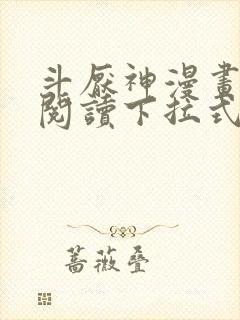 斗厭神漫畫
閱讀下拉式
薔薇疊